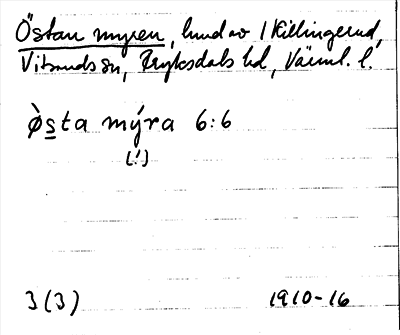 Östan myren, hmd av 1 Killingerud,
Vitsands sn, Fryksdals hd, Värml. l.
ø̀sta mýra 6:6
(!)
3(3) 1910-16